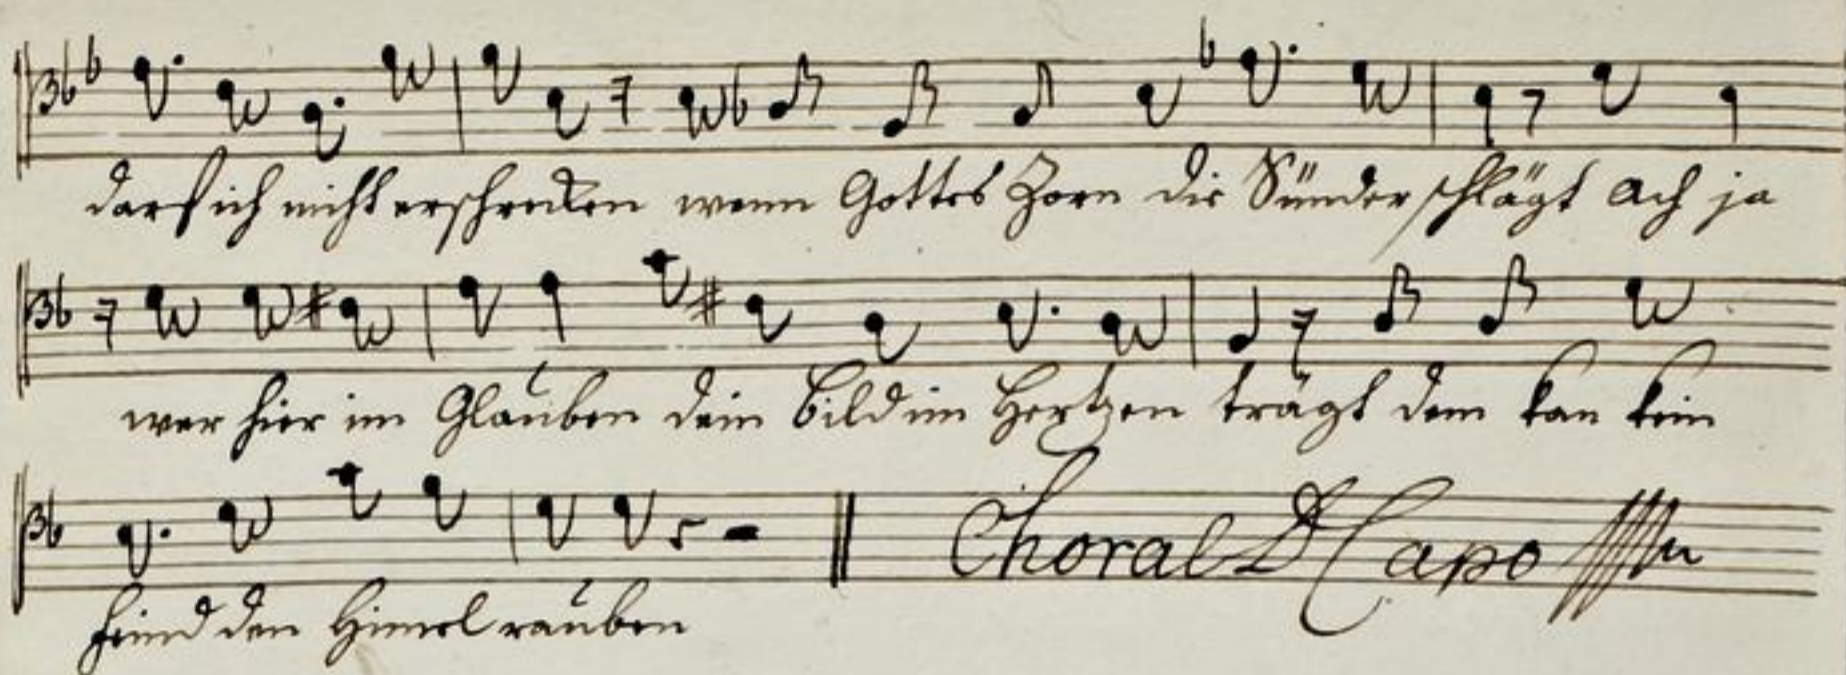 darf ich nicht erschrecken wenn Gottes Zorn die Sünder schlägt Ach ja
wer hier im Glauben dein Bild im Hertzen trägt dem kan kein
feind den Himel rauben
Choral D Capo